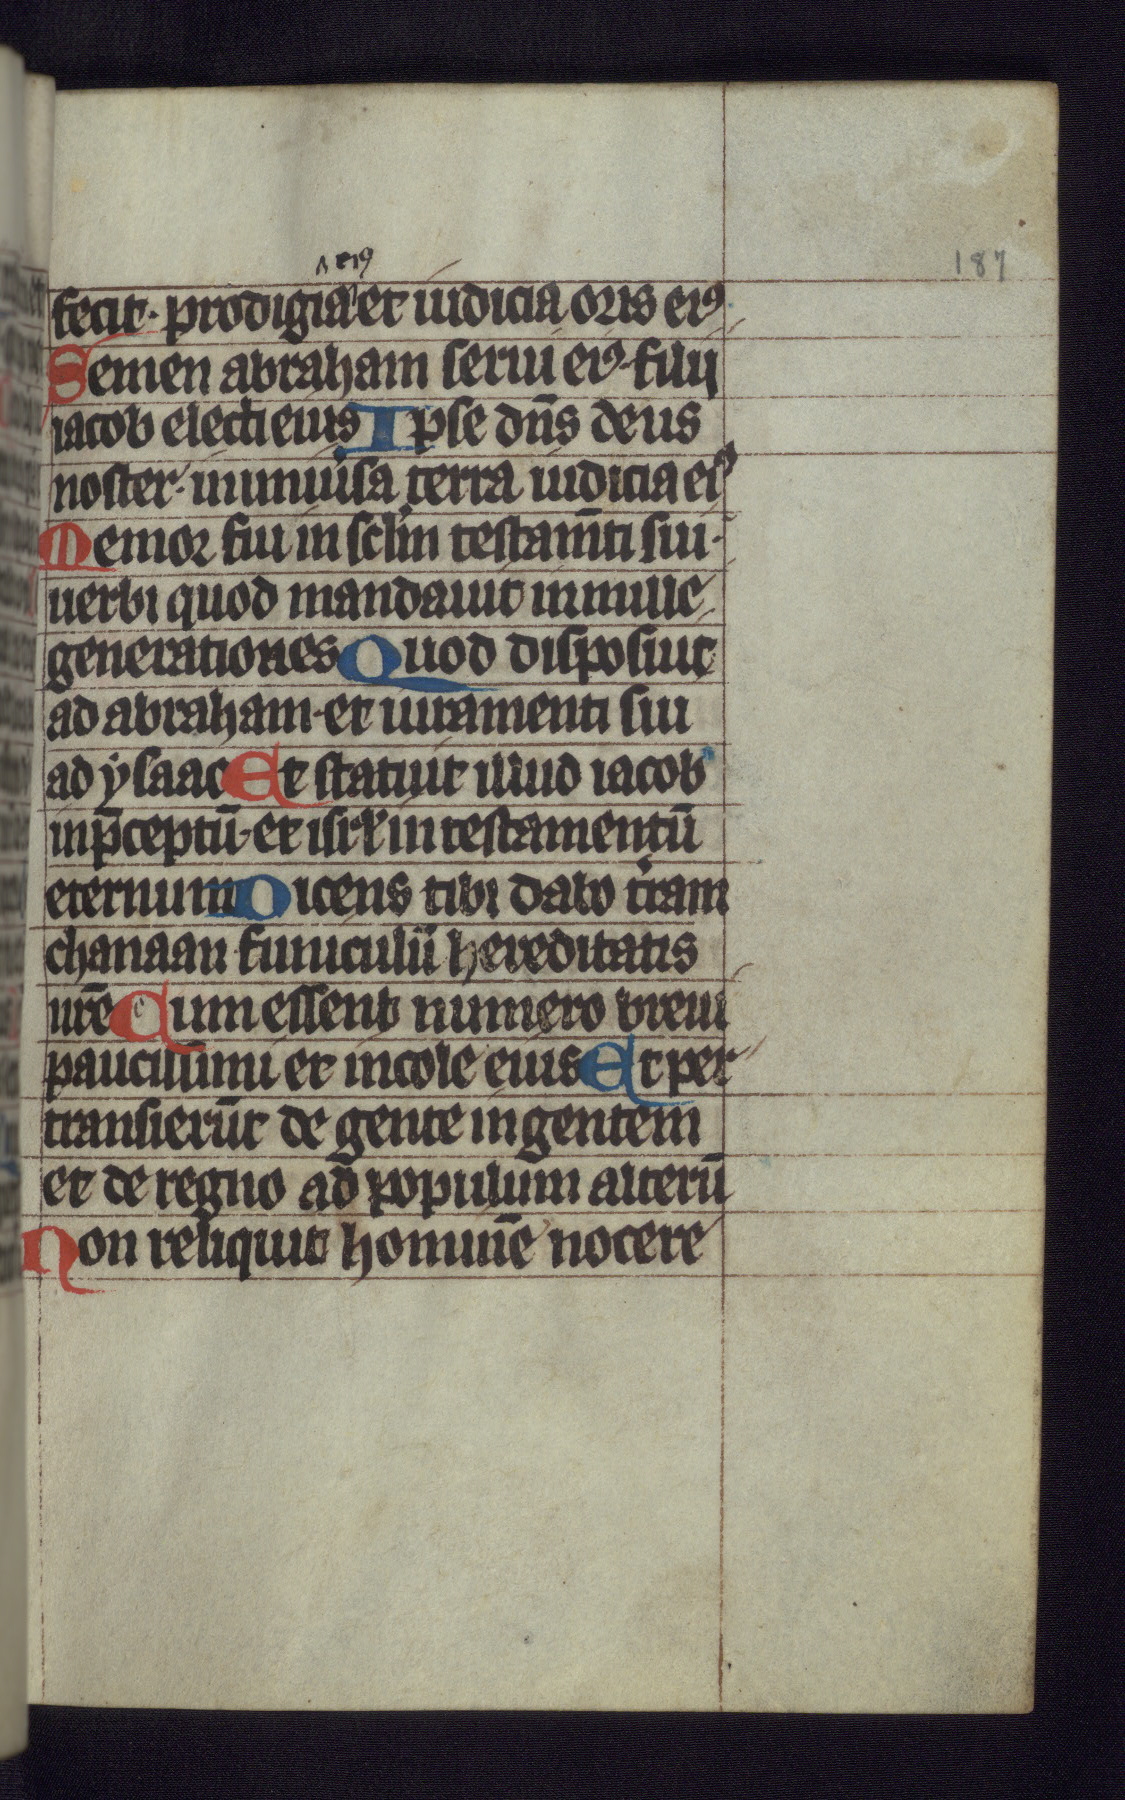 187
eiꝰ
fecit· prodigia et iudicia oris eiꝰ
Semen abraham serui eiꝰ· filii
iacob electi eius Ipse dn̄s deus
noster· in uniuisa terra iudicia eiꝰ
Memor fuit in sc̄lm testam̄ti sui·
uerbi quod mandauit in mille
generationes Quod disposuit
ad abraham· et iuramenti sui
ad ysaac Et statuit illud iacob
in p̄ceptū· et isrl̄ in testamentū
eternum Dicens tibi dabo t̄ram
chanaan funiculū hereditatis
ur̄e Cum essent numero breui
paucissimi et incole eius Et per
transierūt de gente in gentem
et de regno ad populum alterū
Non reliquit hominē nocere